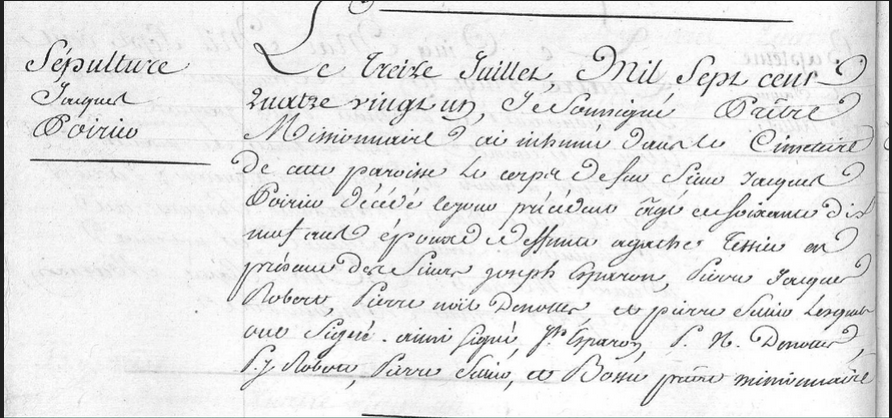 Sépulture
Jacques
Poirier
Le treize Juillet Mil Sept cent
Quatre vingt un, Je Soussigné Prêtre
Missionnaire ai inhumé dans le Cimetiere
de cette paroisse le corps de feu Sieur Jacques
Poirier décédé le jour précédent âgé de soixante dix
neuf ans époux de deffunte agathe Tessier en
présence des Sieurs joseph Esparon, Pierre Jacques
Robert, Pierre noël et pierre Lesquels
ont Signé. ainsi Signé, Jh. Esparon, P. N.
P. J. Robert, Pierre et prêtre missionnaire